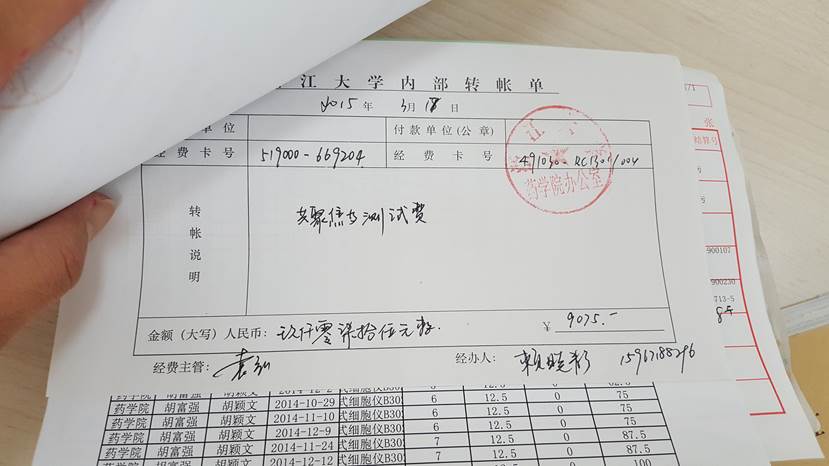 江大学内部转帐单
2015年3月18日
单位 付款单位(公章)
经费卡号 519000-669204 经费卡号
药学院办公室
转帐说明
共聚焦与测试费
金额(大写)人民币:玖仟零柒拾伍元整 ¥ 9075.-
经费主管: 经办人: 赖晓彰 15967188296
药学院 胡富强 胡颖文 2014-10-29 式细胞仪B30 6 12.5 0 75
药学院 胡富强 胡颖文 2014-11-10 式细胞仪B30 6 12.5 0 75
药学院 胡富强 胡颖文 2014-12-9 式细胞仪B30 6 12.5 0 75
药学院 胡富强 胡颖文 2014-11-24 式细胞仪B30 7 12.5 0 87.5
2014-12-12 式细胞仪B30 7 12.5 0 87.5
100
张
900107
900230
713-5